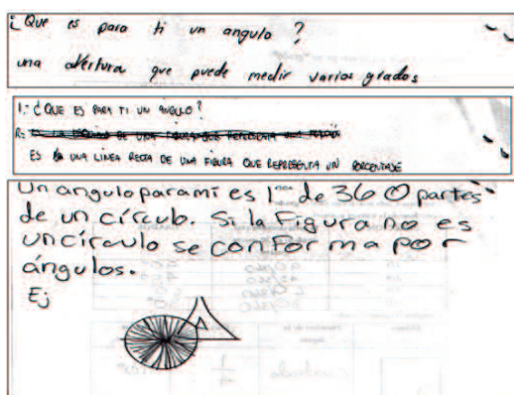 ¿Que es para ti un angulo?
una abertura que puede medir varios grados
1.- ¿QUE ES PARA TI UN ANGULO?
R=
ES UNA LINEA RECTA DE UNA FIGURA QUE REPRESENTA UN PORCENTAJE
Un angulo para mi es 1 de 360 partes
de un círculo. Si la Figura no es
un círculo se conforma por
ángulos.
Ej